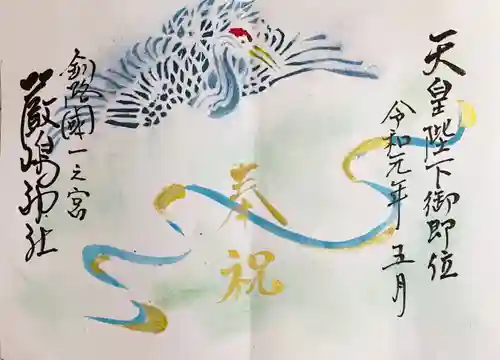 天皇陛下御即位
令和元年五月
奉祝
釧路國一之宮
厳嶋神社